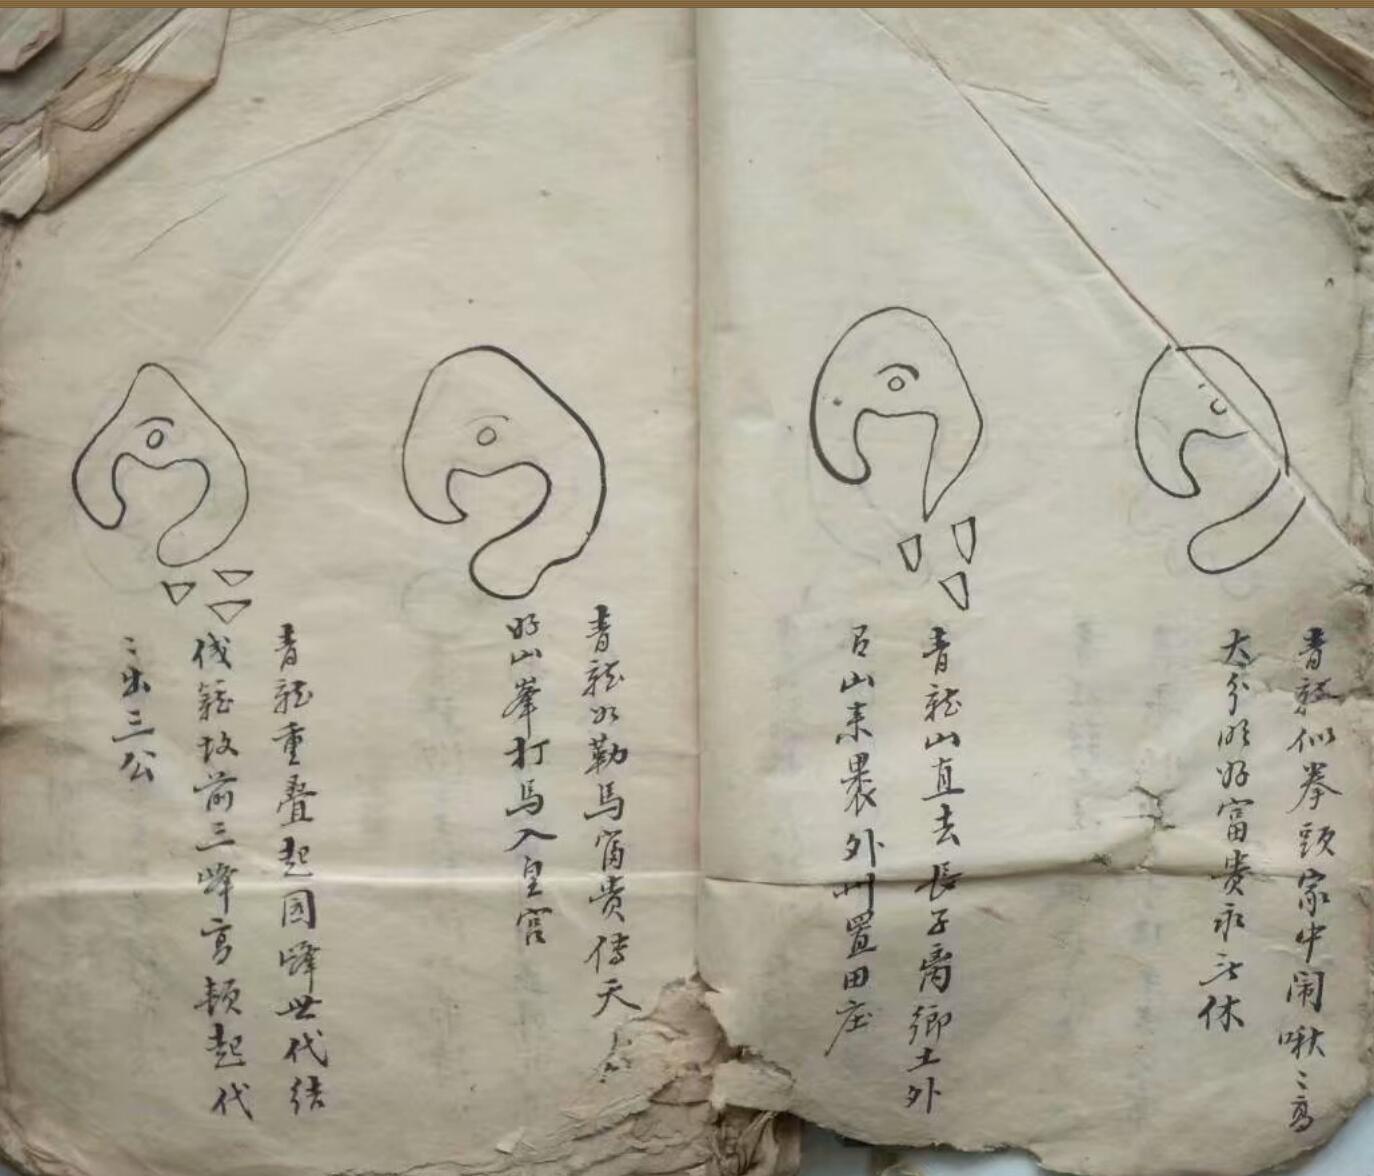 青龍似拳頭家中闹啾〻高
大分明好富贵永无休
青龍山直去長子离鄉土外
名山来裹外州置田庄
青龍如勒馬富贵傳天
好山峯打馬入皇宫
青龍重叠起圆峰世代结
伐龍坟前三峰高頓起代
〻出三公